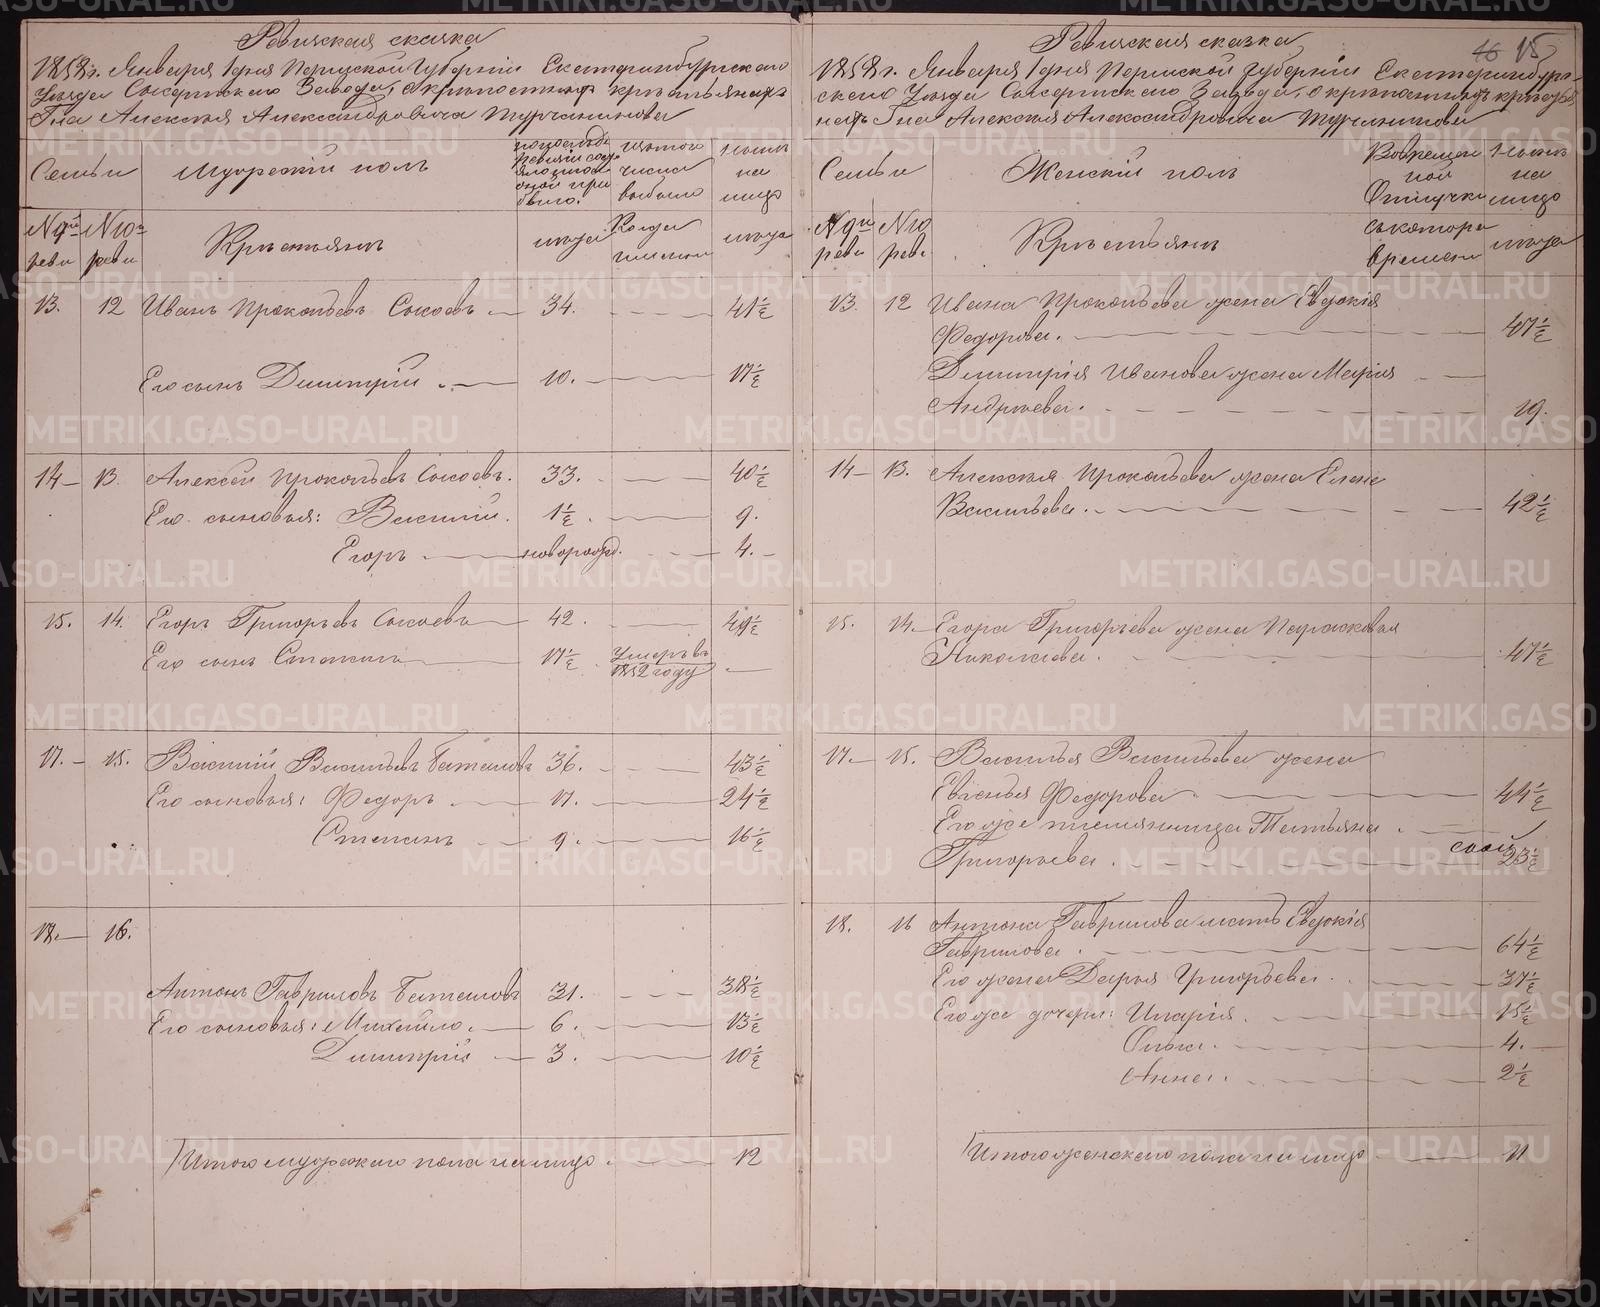 Ревизская сказка
1858 г. Января 1 дня Пермской Губернии Екатеринбургскаго
Уезда Сысертскаго Завода, о крепостных крестьянах
Гна Алексея Александровича Турчанинова
Семьи Мужеский пол
из числа выбыло
ныне на лицо
№ 9й реви № 10й реви Крестьяне лета Когда именно лета
13. 12 Иванъ Прокопьевъ 34. 41 1/2
Его сынъ Димитрий 10. 17 1/2
14 13. Алексей Прокопьевъ 33. 40 1/2
Его сыновья: Василий. 1 1/2. 9.
Егоръ новорожд. 4.
15. 14. Егоръ Григорьевъ 42. 49 1/2
Его сынъ Степанъ 17 1/2 Умеръ въ 1852 году
17. 15. Василий Васильевъ Баталовъ 36. 43 1/2
Его сыновья: Федоръ 17. 24 1/2
Степанъ 9. 16 1/2
18. 16.
Антонъ Гавриловъ Баталовъ 31. 38 1/2
Его сыновья: Михайло. 6. 13 1/2
Димитрий 3. 10 1/2
Итого мужескаго пола на лицо 12
46 15
Ревизская сказка
1858 г. Января 1 дня Пермской Губернии Екатеринбург-
скаго Уезда Сысертскаго Завода, о крепостныхъ крестья-
нахъ Гна Алексея Александровича Турчанинова
Семьи Женский пол Во временной Отлучке ныне на лицо
№ 9й реви № 10 реви Крестьяне съ котораго времени лета
13. 12 Ивана Прокопьева жена Евдокия
Федорова. 47 1/2
Димитрия Иванова жена Мария
Андреева. 19.
14 13. Алексея Прокопьева жена Елена
Васильева. 42 1/2
15. 14. Егора Григорьева жена Парасковья
Николаева. 47 1/2
17. 15. Василья Васильева жена
Евгенья Федорова 44 1/2
Его же племянница Татьяна
Григорьева. 23 1/2
18. 16 Антона Гаврилова мать Евдокия
Гаврилова 64 1/2
Его жена Дарья Григорьева. 37 1/2
Его же дочери: 15 1/2
Ольга. 4.
Анна. 2 1/2
Итого женскаго пола на лицо 11
METRIKI.GASO-URAL.RU